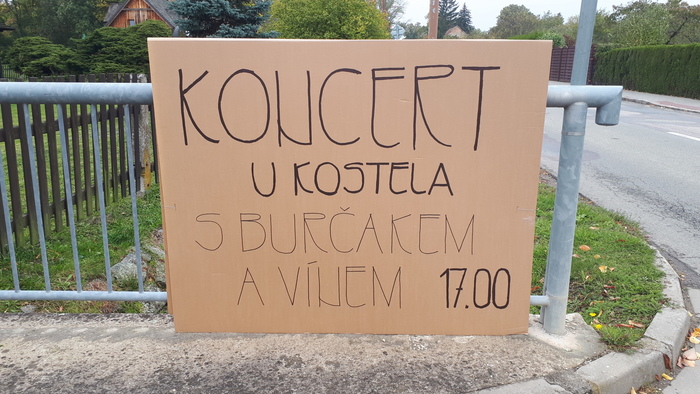 KONCERT
U KOSTELA
S BURČAKEM
A VÍNEM 17.00